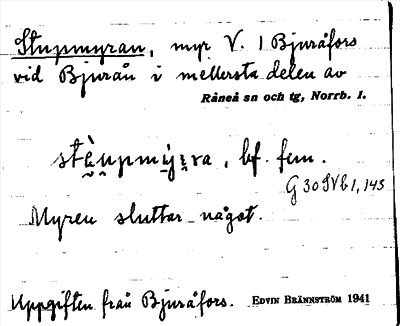 Stupmyran, myr V. I Bjuråfors
vid Bjurån i mellersta delen av
Råneå sn och tg, Norrb. l.
bf. fem.
G 30 SVb 1, 143
Myren sluttar något.
Uppgiften från Bjuråfors. EDVIN BRÄNNSTRÖM 1941